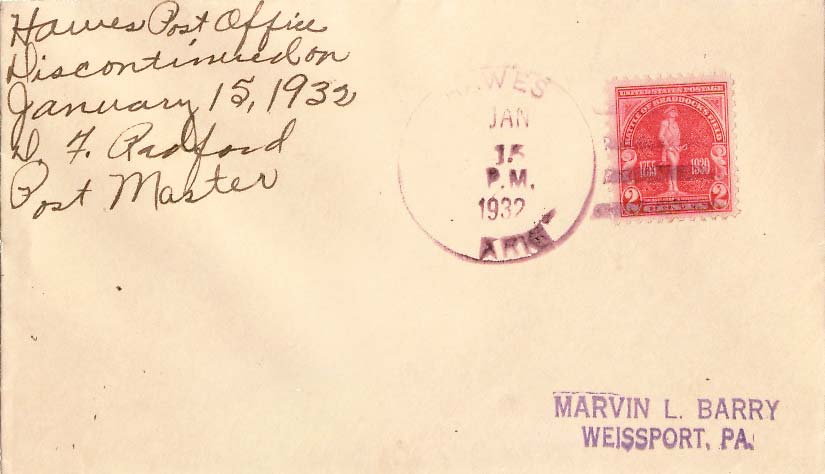 Hawes Post Office
Discontinued on
January 15, 1932
D. F. Radford
Post Master
HAWES
JAN
15
P.M.
1932
ARK
UNITED STATES POSTAGE
BATTLE OF BRADDOCK'S FIELD
1755 1930
2 2
CENTS
MARVIN L. BARRY
WEISSPORT, PA.